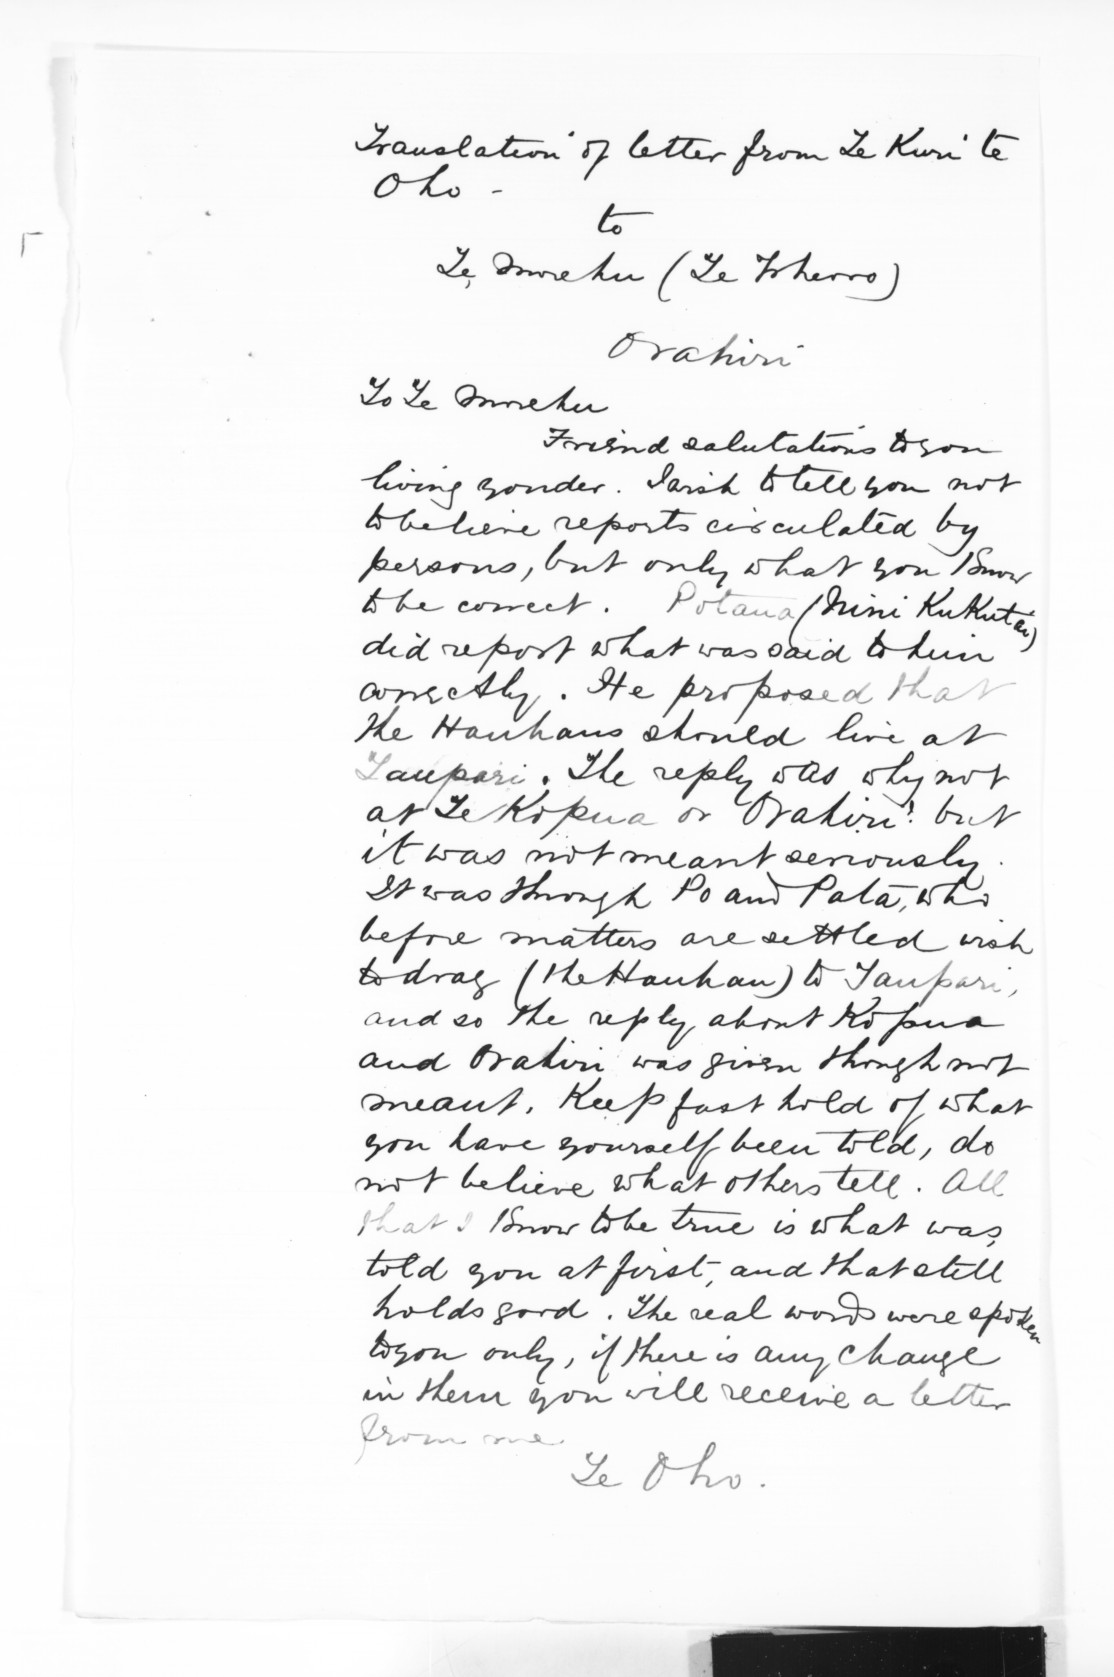 Translation of letter from Te Kuri te
Oho -
to
Te Morehu (Te Wheoro)
Orahiri
To Te Morehu
Friend salutations to you
living yonder. I wish to tell you not
to believe reports circulated by
persons, but only what you know
to be correct. Potana (Nini Kukutai)
did report what was said to him
correctly. He proposed that
the Hauhaus should live at
Taupari. The reply was why not
at Te Kopua or Orahiri? but
it was not meant seriously.
It was through Po and Pata, who
before matters are settled wish
to drag (the Hauhau) to Taupari,
and so the reply about Kopua
and Orahiri was given though not
meant. Keep fast hold of what
you have yourself been told, do
not believe what others tell. All
that I know to be true is what was
told you at first, and that still
holds good. The real words were spoken
to you only, if there is any change
in them you will receive a letter
from me
Te Oho.